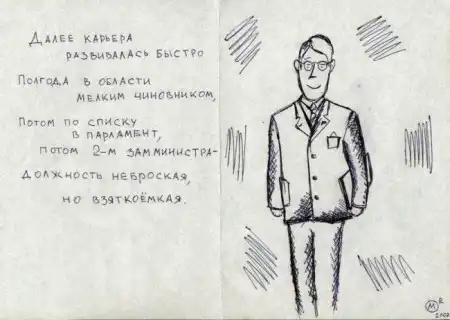 ДАЛЕЕ КАРЬЕРА
РАЗВИВАЛАСЬ БЫСТРО
ПОЛГОДА В ОБЛАСТИ
МЕЛКИМ ЧИНОВНИКОМ,
ПОТОМ ПО СПИСКУ
В ПАРЛАМЕНТ,
ПОТОМ 2-М ЗАММИНИСТРА-
ДОЛЖНОСТЬ НЕБРОСКАЯ,
НО ВЗЯТКОЁМКАЯ.